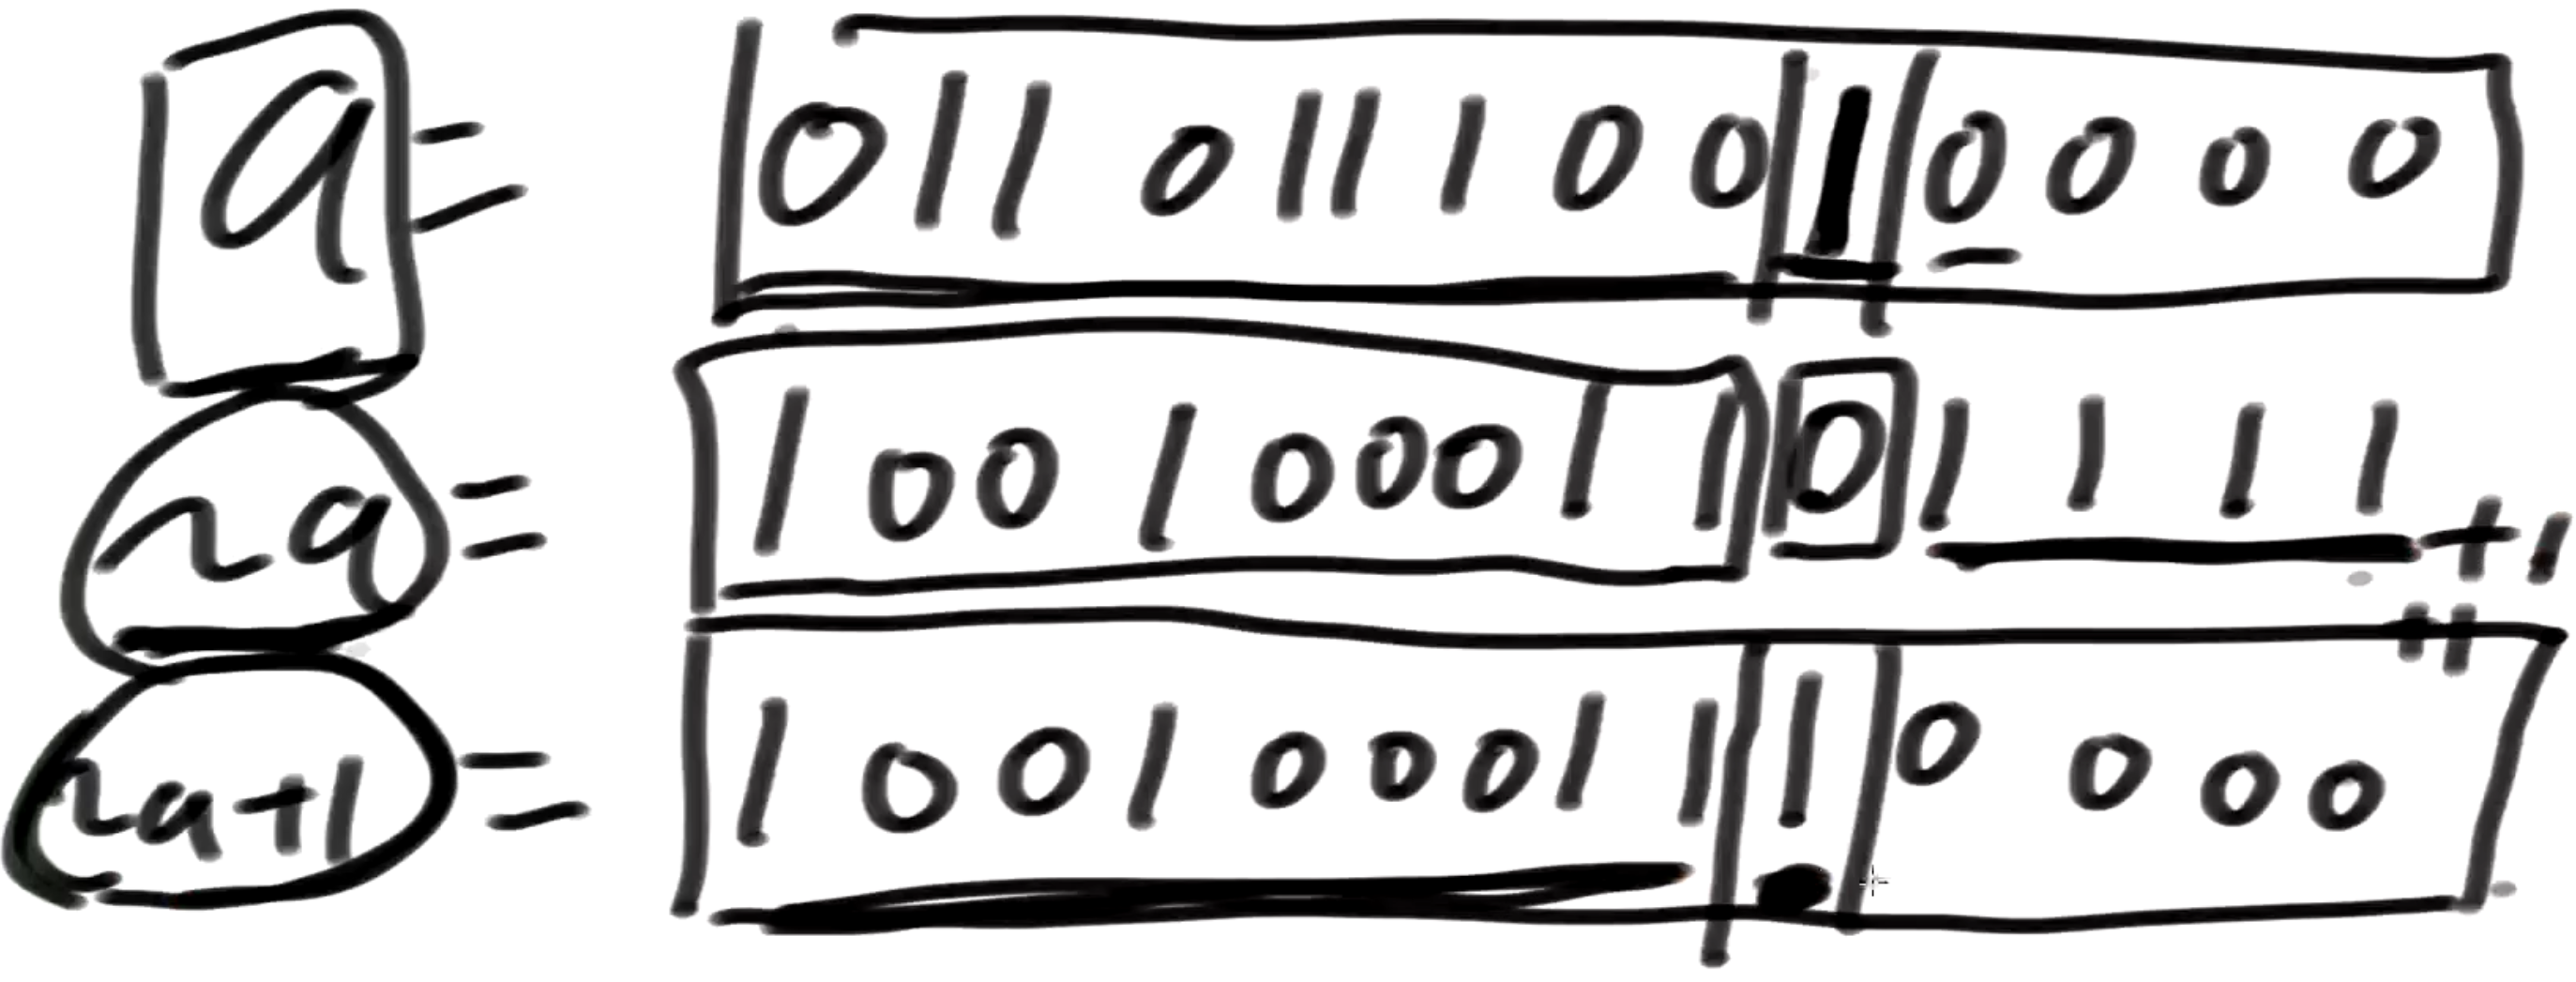 a = 0 1 1 0 1 1 1 0 0 1 0 0 0 0
~a = 1 0 0 1 0 0 0 1 1 0 1 1 1 1 +1
~a+1 = 1 0 0 1 0 0 0 1 1 1 0 0 0 0